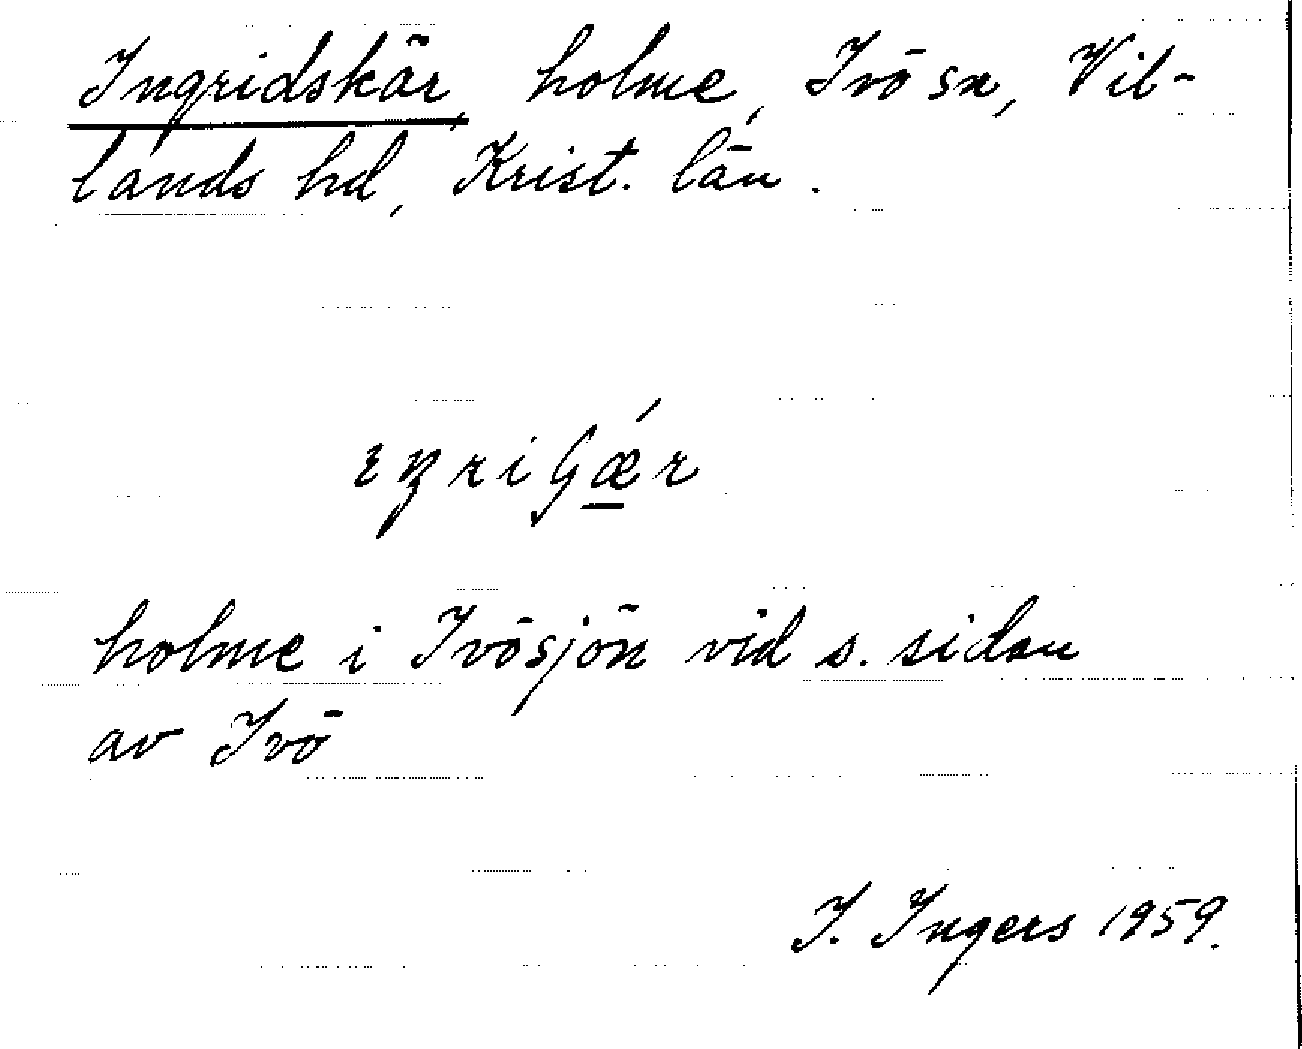 Ingridskär, holme, Ivö sn, Vil-
lands hd, Krist. län.
holme i Ivösjön vid s. sidan
av Ivö
I. Ingers 1959.